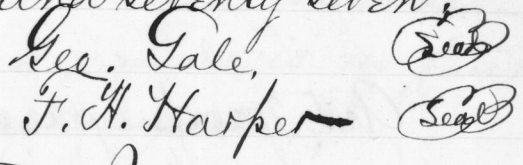 and seventy seven.
Geo. Gale, Seal
F. H. Harper Seal